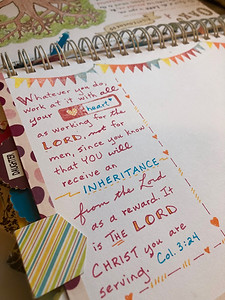 Whatever you do,
work at it with all
your heart
as working for the
LORD, not for
men, since you know
that YOU will
receive an
INHERITANCE
from the Lord
as a reward. It
is THE LORD
CHRIST you are
serving. Col. 3:24